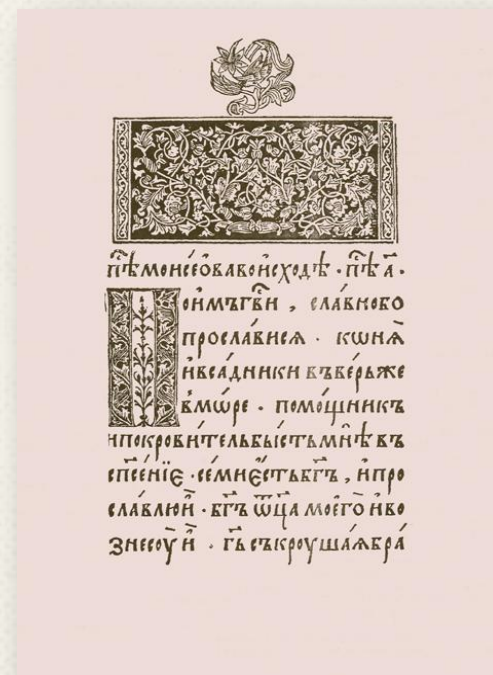 пⷭ҇ѣ моисео́ва во исхо́дѣ · пⷭ҇ѣ а҃ ·
Пои́мъ гⷭ҇ви , сла́вно бо
просла́вися · кѡня̀
и҆ вса́дники въве́рьже
в мо́ре · помо́щникъ
и҆ покрови́тель бы́сть мнѣ̀ въ
спⷭ҇е́нїе · се́й мѝ є҆́сть бг҃ъ , и҆ про
сла́влю и҆̀ · бг҃ъ ѿц҃а моего̀ и҆ во
знесо́у и҆̀ · гь҃ съкроуша́я бра